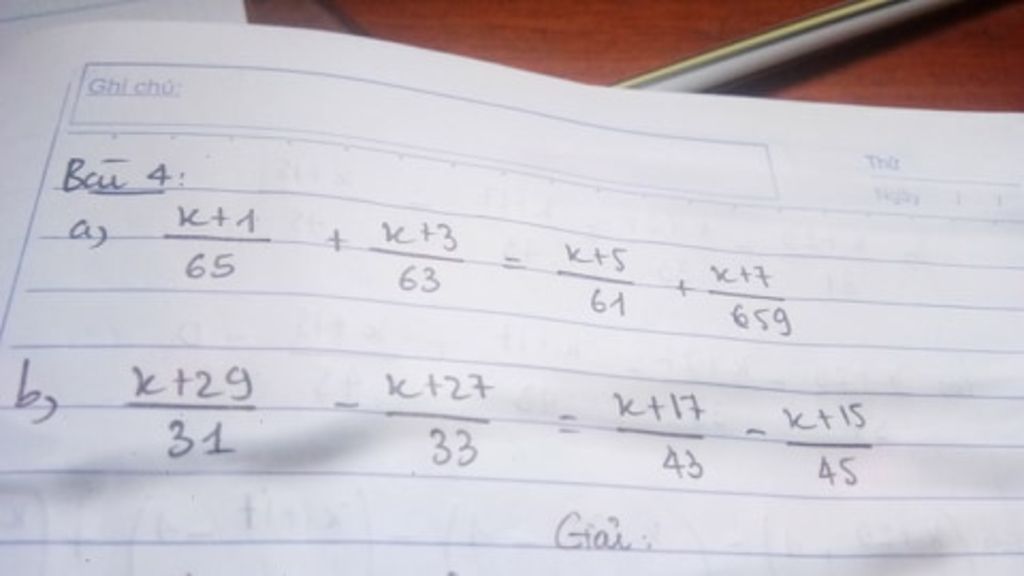 Ghi chú:
Thứ
Ngày
Bài 4:
a, x+1/65 + x+3/63 = x+5/61 + x+7/659
b, x+29/31 - x+27/33 = x+17/43 - x+15/45
Giải: